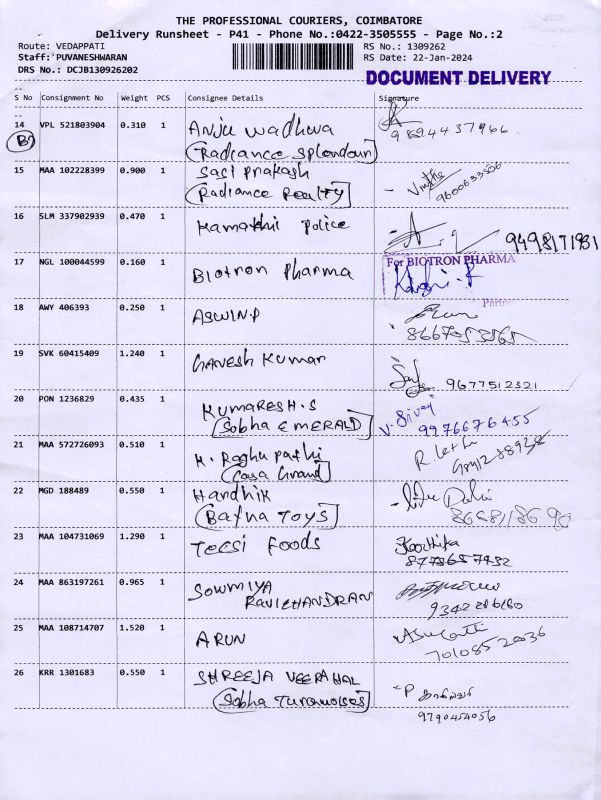 THE PROFESSIONAL COURIERS, COIMBATORE
Delivery Runsheet - P41 - Phone No.:0422-3505555 - Page No.:2
Route: VEDAPPATI
Staff: PUVANESHWARAN
DRS No.: DCJB130926202
RS No.: 1309262
RS Date: 22-Jan-2024
DOCUMENT DELIVERY
S No Consignment No Weight PCS Consignee Details Signature
14 VPL 521803904 0.310 1 Anju Wadhwa
(Radiance Splendour)
15 MAA 102228399 0.900 1 Sasi Prakash
(Radiance Realty)
9600633506
16 SLM 337902939 0.470 1 Kamakhi Police
9498171981
17 NGL 100044599 0.160 1 Biotron Pharma
For BIOTRON PHARMA
Partner
18 AWY 406393 0.250 1 ASWIN.P
19 SVK 60415409 1.240 1 GANESH KUMAR
9677512321
20 PON 1236829 0.435 1 KUMARESH.S
(Sobha EMERALD)
9976676455
21 MAA 572726093 0.510 1 K. Raghu pathi
(Casa Grand)
22 MGD 188489 0.550 1 Handhik
(Bafna Toys)
23 MAA 104731069 1.290 1 TECSI Foods
Karthika
24 MAA 863197261 0.965 1 SOWMIYA
RAVICHANDRAN
25 MAA 108714707 1.520 1 ARUN
7010852036
26 KRR 1301683 0.550 1 SHREEJA VEERAHAL
9790454056